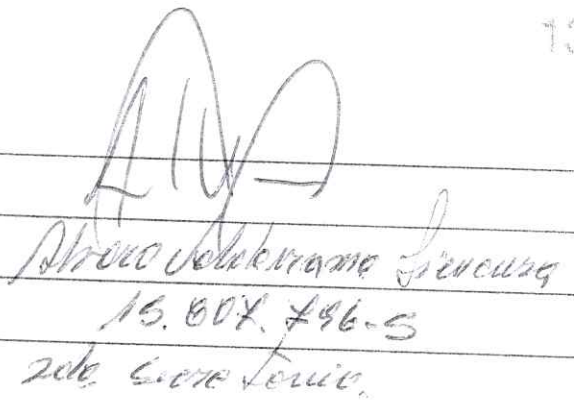 13
Alvaro Valderrama
15.607.796-5
2do Secretario.